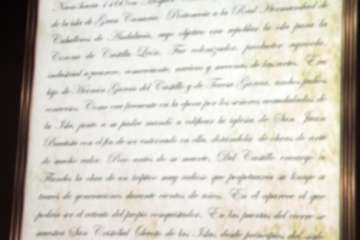 de la isla de Gran Canaria. Perteneció a la Real Hermandad de
Caballeros de Andalucía, cuyo objetivo era repoblar la isla para la
Corona de Castilla León. Fue colonizador, productor agrícola,
industrial azucarero, comerciante, naviero y mecenas de las artes. Era
hijo de Hernán García del Castillo y de Teresa García, ambos judíos
conversos. Como era frecuente en la época por los señores acaudalados de
la Isla, junto a su padre mandó a edificar la iglesia de San Juan
Bautista con el fin de ser enterrado en ella, dotándola de obras de arte
de mucho valor. Poco antes de su muerte, Del Castillo encargó a
Flandes la obra de un tríptico muy valioso que perpetuaría su linaje a
través de generaciones durante cientos de años. En él aparece el que
podría ser el retrato del propio conquistador. En las puertas del cierre se
muestra San Cristóbal